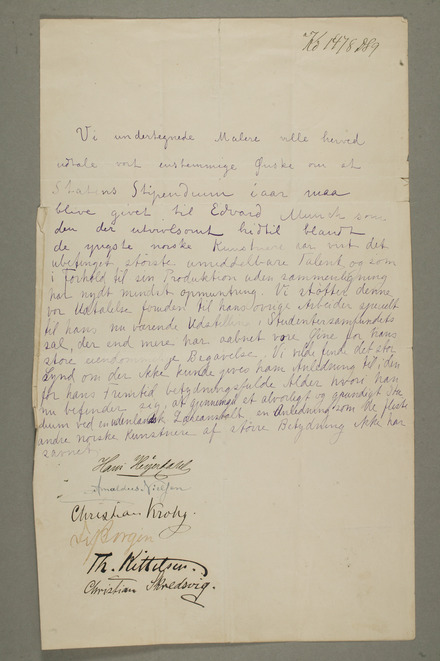 Kb 1478 D89
Vi undertegnede Malere ville herved
udtale vort enstemmige Ønske om at
Statens Stipendium iaar maa
blive givet til Edvard Munch som
den der utvivlsomt hidtil blandt
de yngste norske Kunstnere har vist det
ubetinget største umiddelbare Talent og som
i Forhold til sin Produktion uden sammenligning
har nydt mindst opmuntring. Vi støtter denne
vor Udtalelse foruden til hans øvrige Arbeider specielt
til hans nu værende Udstilling i Studentersamfundets
sal, der end mere har aabnet vore Øine for hans
store Begavelse. Vi vilde finde det stor
Synd om der ikke kunde gives ham Anledning til i den
for hans Fremtid betydningsfulde Alder hvori han
nu befinder sig, at gjennemgå et alvorligt og grundigt Stu
dium ved en udenlandsk Læreanstalt en Anledning som de fleste
andre norske Kunstnere af større Betydning ikke har
savnet.
Hans Heyerdahl
Amaldus Nielsen
Christian Krohg.
Borgen
Th. Kittelsen.
Christian Skredsvig.